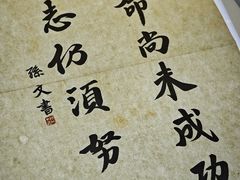 命尚未成功
志仍須努
孫文書